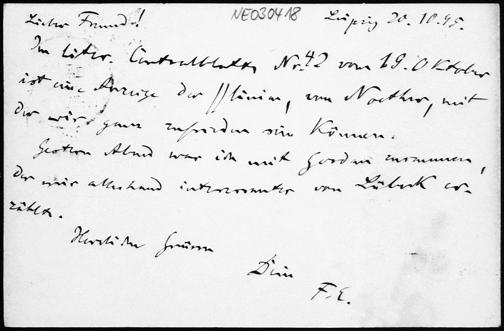 NEO30418
Lieber Freund! Leipzig 20.10.95.
Im liter. Centralblatte Nr. 42 vom 19. Oktober
ist eine Anzeige der von Noether, mit
der wir ganz zufrieden sein können.
Gestern Abend war ich mit Gordan zusammen,
der mir allerhand interessantes von Lübeck er-
zählte.
Herzliche Grüsse
Dein
F. E.